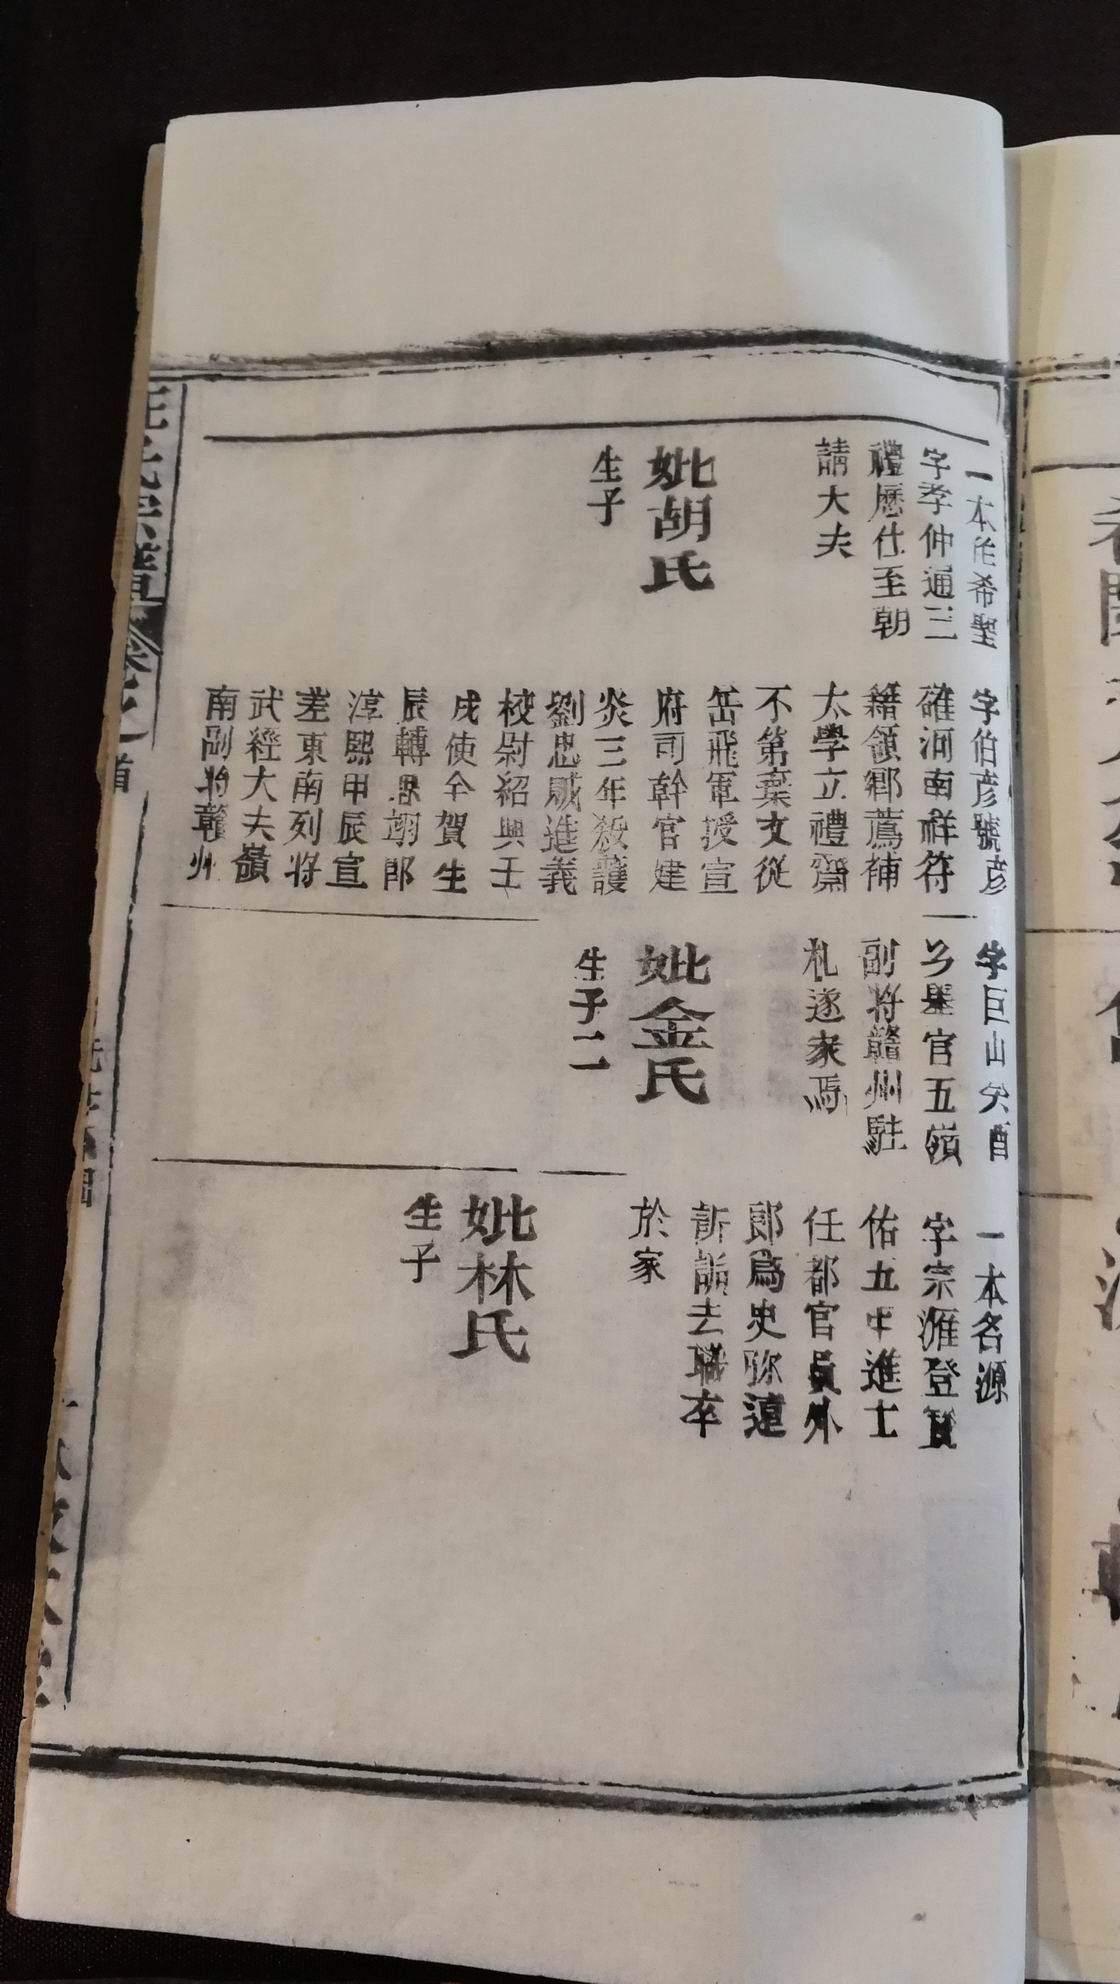 一本作希聖
字孝仲通三
禮歷仕至朝
請大夫
妣胡氏
生子
字伯彦號彦
確河南祥符
籍領鄉薦補
太學立禮齋
不第棄文從
岳飛軍授宣
府司幹官建
炎三年殺護
劉忠賊進義
校尉紹興壬
戌使全賀生
辰轉忠翊郎
淳熙甲辰宣
差東南列將
武經大夫嶺
南副将贛州
字巨山癸酉
官五嶺
副将贛州駐
札遂家焉
妣金氏
生子二
一本名源
字宗濰登寶
佑五中進士
任都官員外
郎為史弥遠
訴詬去職卒
於家
妣林氏
生子
汪氏宗譜 卷之首